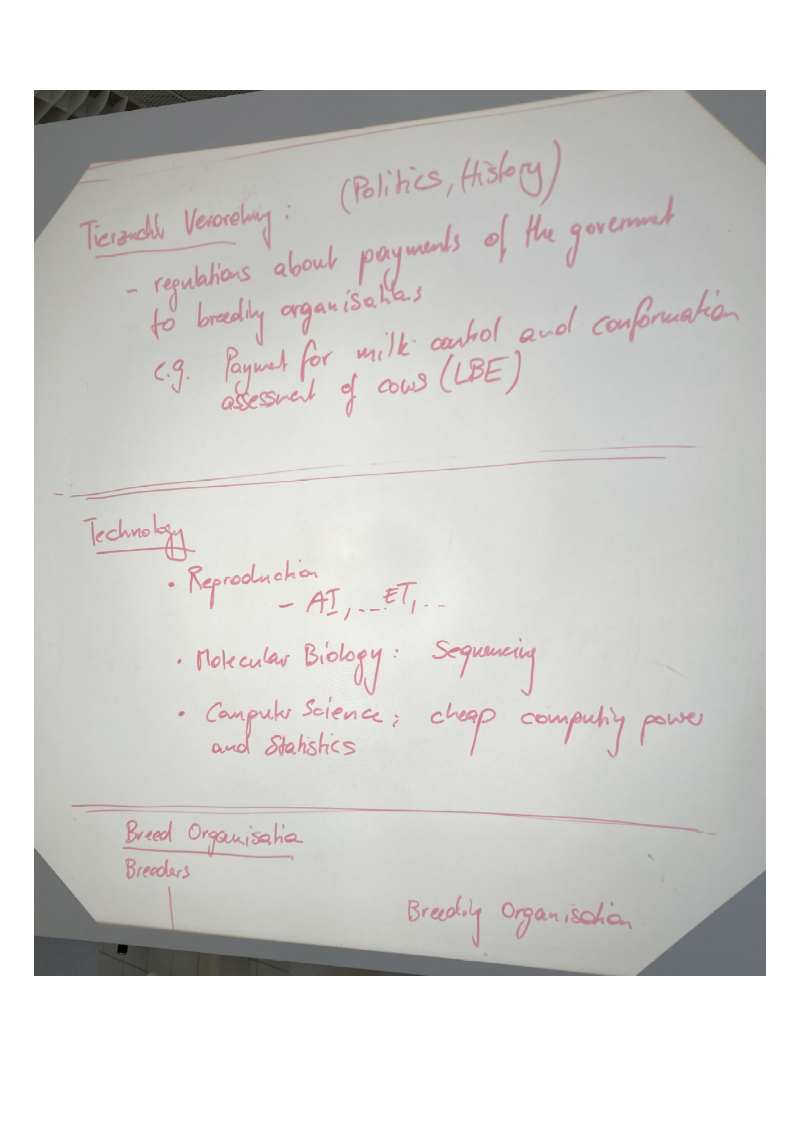 (Politics, History)
Tierzucht Verordnung :
- regulations about payments of the government
to breeding organisations
e.g. Payment for milk control and conformation
assessment of cows (LBE)
Technology
• Reproduction
- AI, ... ET, ..
• Molecular Biology : Sequencing
• Computer Science ; cheap computing power
and Statistics
Breed Organisation
Breeders
Breeding Organisation